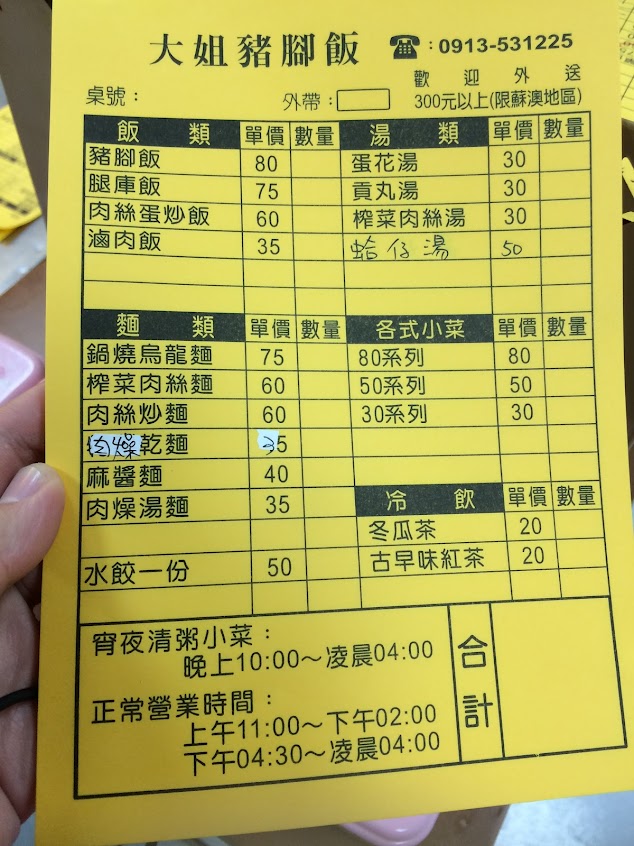 大姐豬腳飯 ☎:0913-531225
歡迎外送
桌號： 外帶： 300元以上(限蘇澳地區)
飯類 單價 數量
豬腳飯 80
腿庫飯 75
肉絲蛋炒飯 60
滷肉飯 35
湯類 單價 數量
蛋花湯 30
貢丸湯 30
榨菜肉絲湯 30
蛤仔湯 50
麵類 單價 數量
鍋燒烏龍麵 75
榨菜肉絲麵 60
肉絲炒麵 60
肉燥乾麵 35
麻醬麵 40
肉燥湯麵 35
水餃一份 50
各式小菜 單價 數量
80系列 80
50系列 50
30系列 30
冷飲 單價 數量
冬瓜茶 20
古早味紅茶 20
宵夜清粥小菜：
晚上10:00～凌晨04:00
正常營業時間：
上午11:00～下午02:00
下午04:30～凌晨04:00
合計